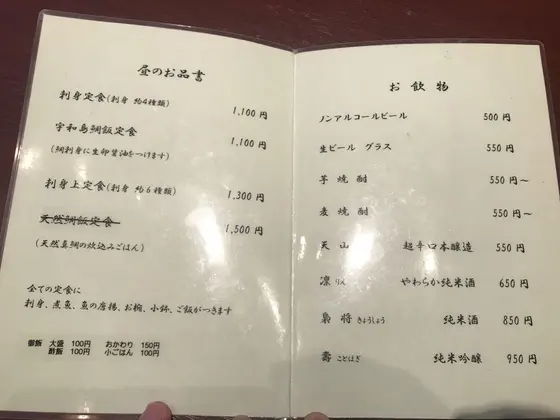 昼のお品書
刺身定食(刺身 約4種類) 1,100 円
宇和島鯛飯定食 1,100 円
(鯛刺身に生卵醤油をつけます)
刺身上定食(刺身 約6種類) 1,300 円
天然鯛飯定食 1,500 円
(天然真鯛の炊込みごはん)
全ての定食に
刺身、煮魚、魚の唐揚、お椀、小鉢、ご飯がつきます
御飯 大盛 100円 おかわり 150円
酢飯 100円 小ごはん 100円
お飲物
ノンアルコールビール 500 円
生ビール グラス 550 円
芋焼酎 550 円～
麦焼酎 550 円～
天山 超辛口本醸造 550 円
凛 りん やわらか純米酒 650 円
梟将 きょうしょう 純米酒 850 円
壽 ことほぎ 純米吟醸 950 円